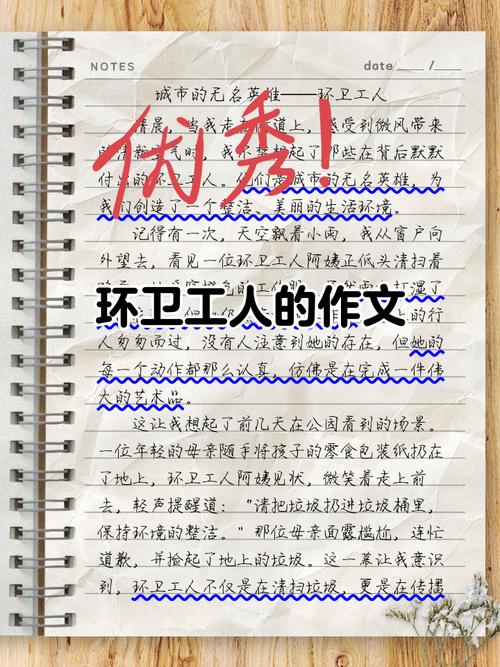 NOTES
date ___ / ___
城市的无名英雄——环卫工人
优秀！
清晨，当我走在街道上，感受到微风带来
清新 气时，我不禁想起了那些在背后默默
付出的环卫工人。他们是城市的无名英雄，为
我们创造了一个整洁、美丽的生活环境。
记得有一次，天空飘着小雨，我从窗户向
外望去，看见一位环卫工人阿姨正低头清扫着
打湿了
环卫工人的作文
上的行
人匆匆而过，没有人注意到她的存在，但她的
每一个动作都那么认真，仿佛是在完成一件伟
大的艺术品。
这让我想起了前几天在公园看到的场景。
一位年轻的母亲随手将孩子的零食包装纸扔在
了地上，环卫工人阿姨见状，微笑着走上前
去，轻声提醒道：“请把垃圾扔进垃圾桶里，
保持环境的整洁。”那位母亲面露尴尬，连忙
道歉，并捡起了地上的垃圾。这一幕让我意识
到，环卫工人不仅是在清扫垃圾，更是在传播